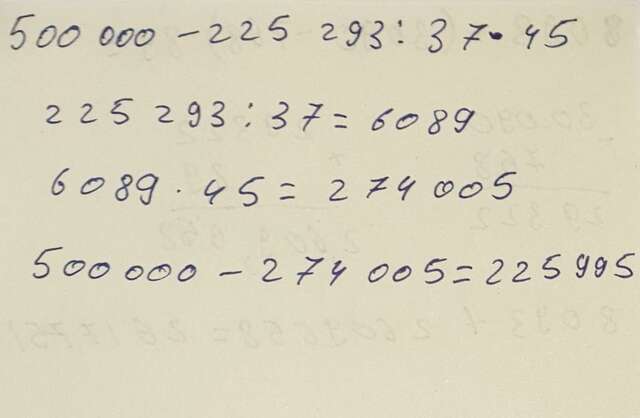 500 000 - 225 293 : 37 · 45
225 293 : 37 = 6089
6089 · 45 = 274 005
500 000 - 274 005 = 225 995